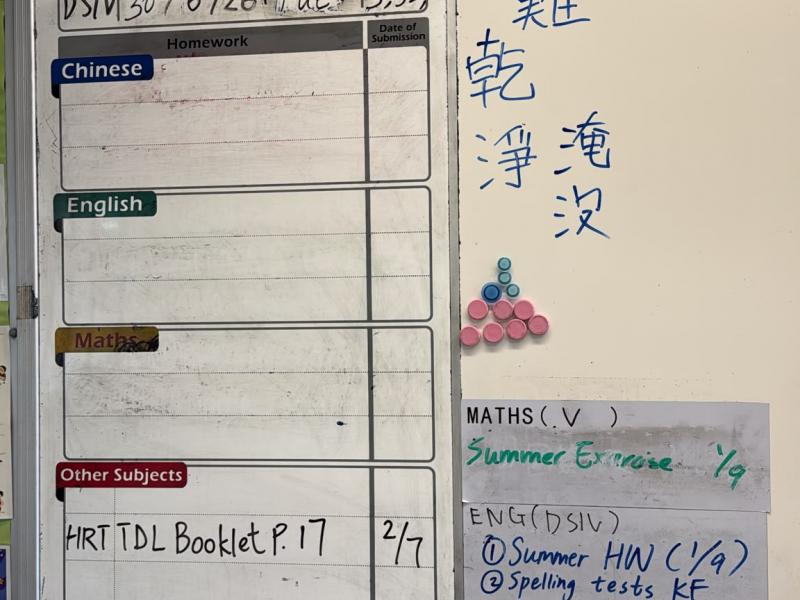 Homework
Date of
Submission
Chinese
English
Maths
Other Subjects
HRT TDL Booklet P. 17
2/7
乾
淨 淹
沒
MATHS(.V )
Summer Exercise 1/9
ENG(DSIV)
① Summer HW (1/9)
② Spelling tests KF